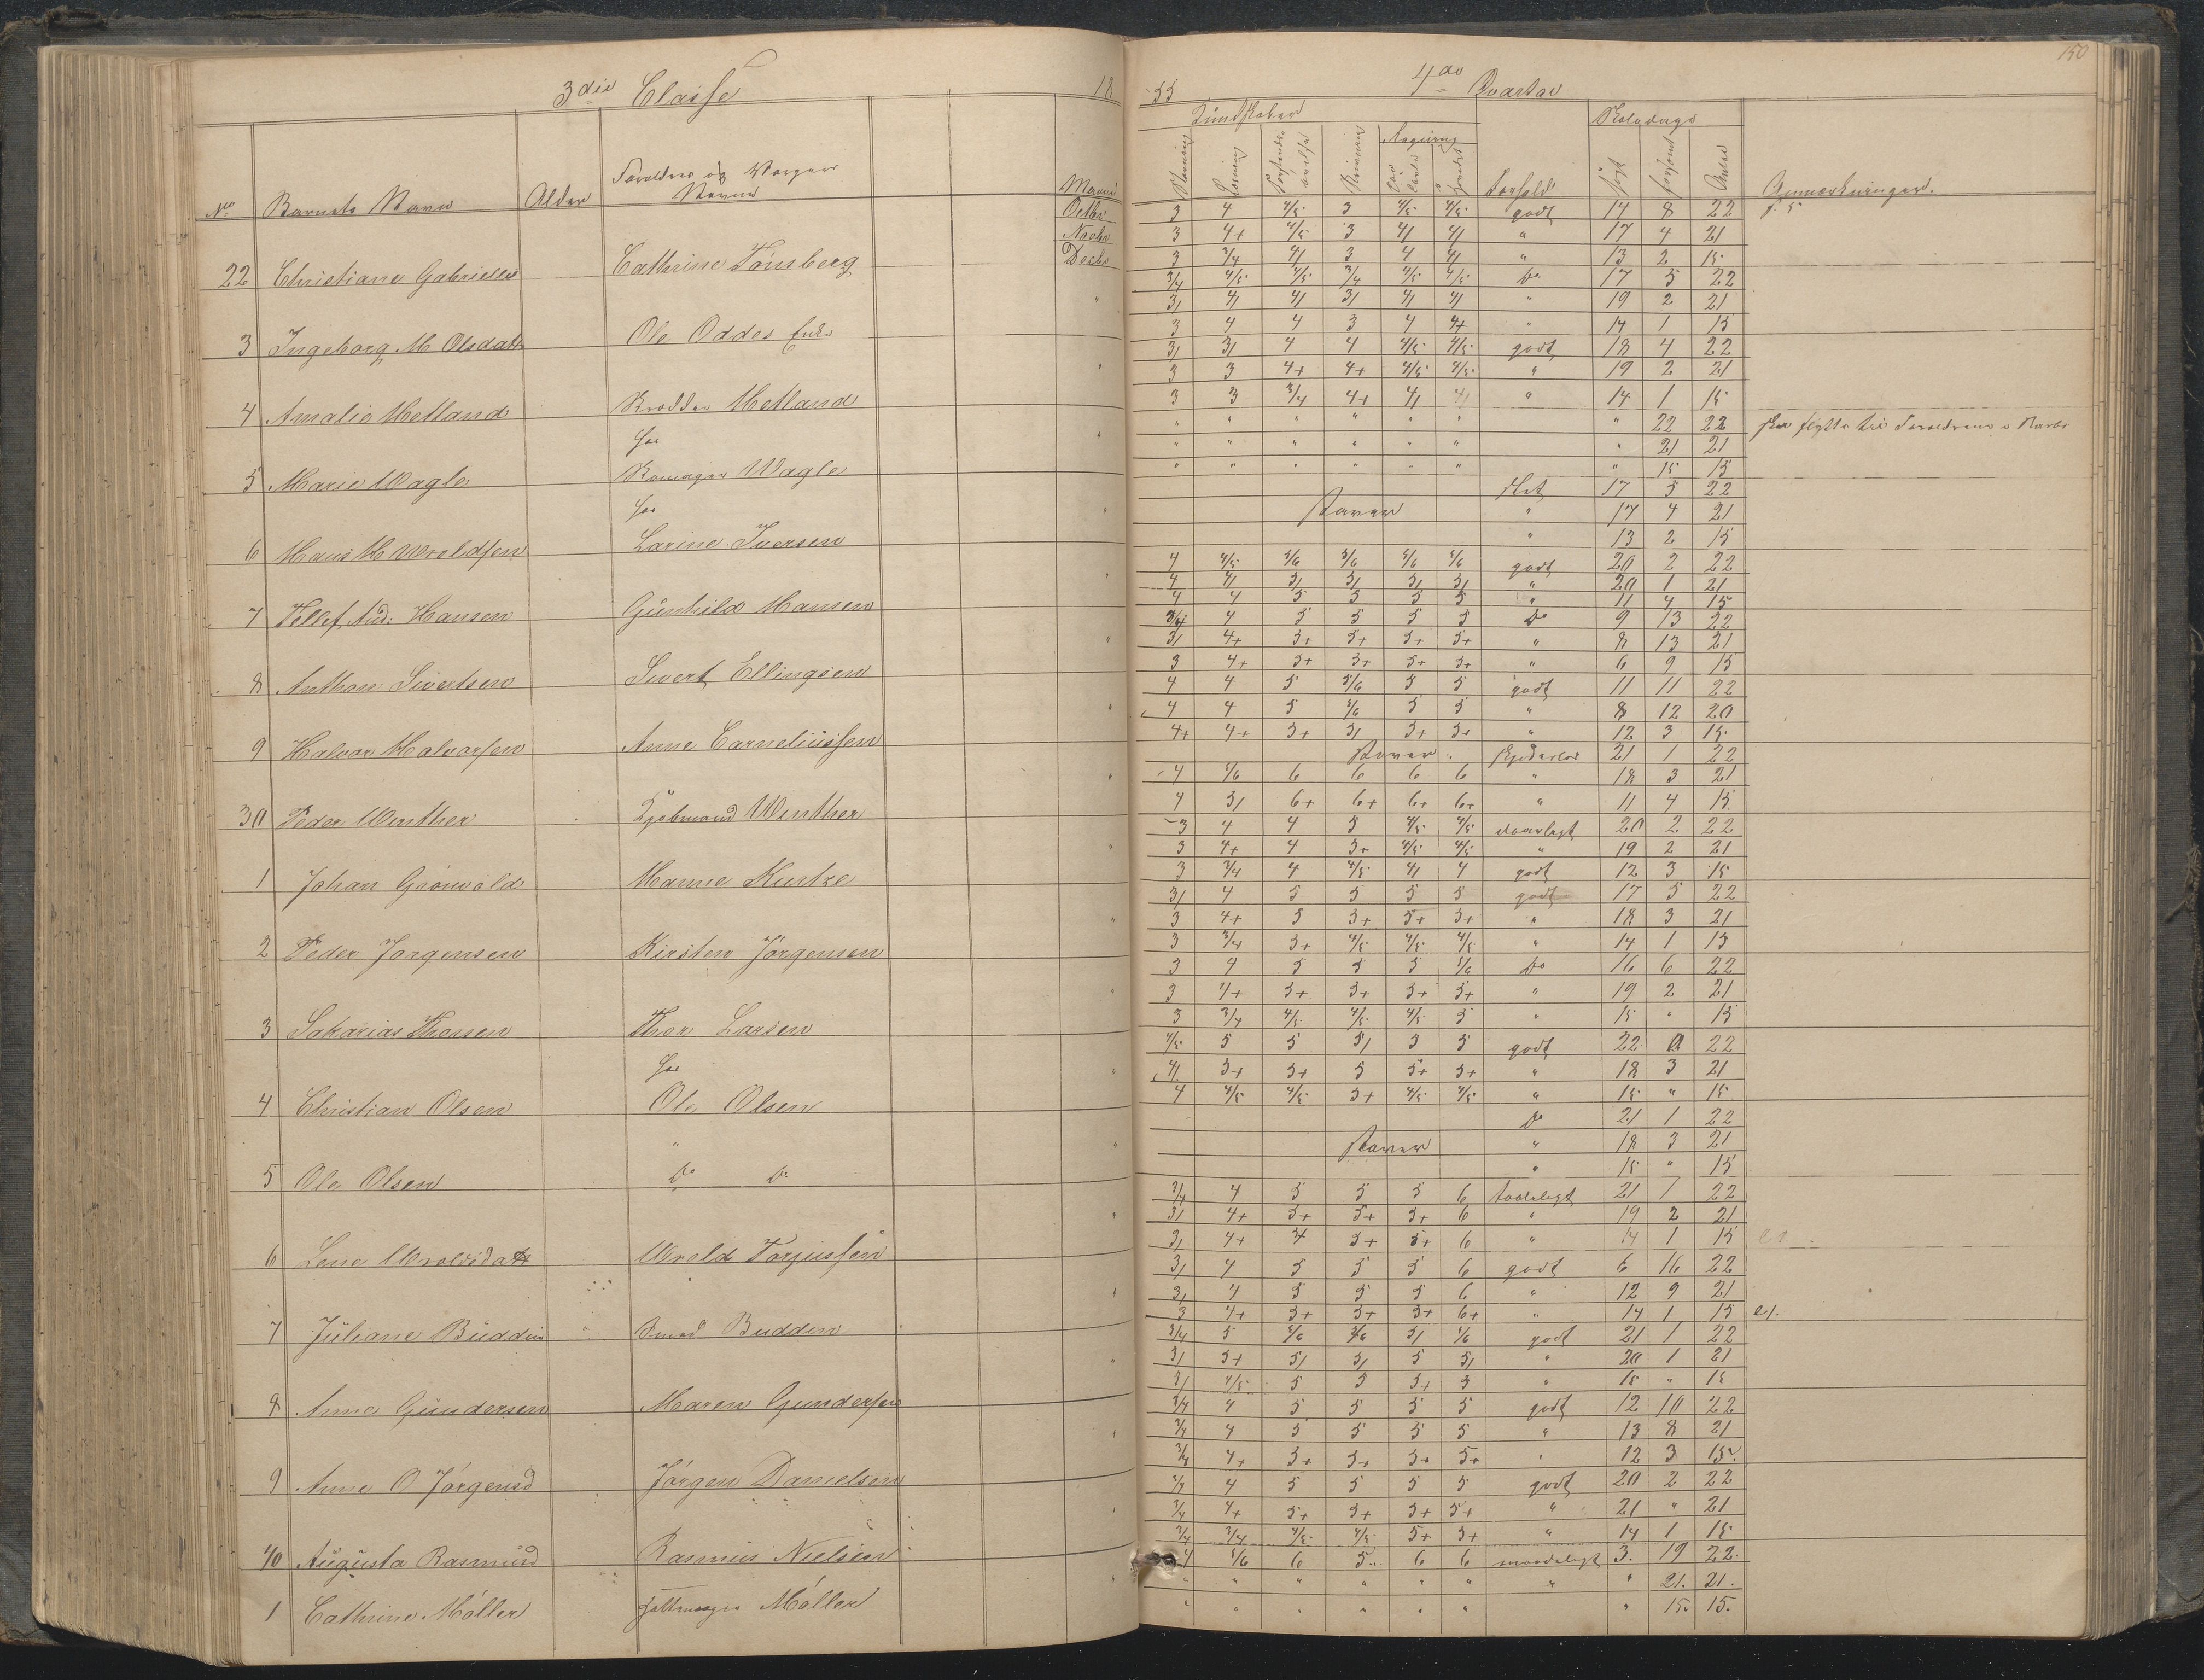 150
3die Classe 18 55 4de Qvartal
Kundskaber Skoledage
No Barnets Navn Alder Forældres og Værgers Navne Maaned Forhold søgt forsømt Antal Anmærkninger.
Octbr 3 4 4/5 3 4/5 4/5 godt 14 8 22
Novbr 3 4+ 4/5 3 4/ 4/ " 17 4 21
22 Christiane Gabrielle Cathrine Tönsberg Decbr 3 3/4 4/ 3 4 4/ " 13 2 15
3/4 4/5 4/5 3/4 4/5 4/5 Do 17 5 22
3/ 4/ 4/ 3/ 4/ 4/ " 19 2 21
3 Ingeborg M Olsdatt Ole Oddes Enke 3 4 4 3 4 4+ " 14 1 15
3/ 3/ 4 4 4/5 4/5 godt 18 4 22
3 3 4+ 4+ 4/5 4/5 " 19 2 21
4 Amalie Hetland Hetland 3 3 3/4 4+ 4/ 4/ " 14 1 15
" " " " " " " 22 22 flytte til Forældrene i Barbo
" " " " " " " 21 21
5 Marie Wagle Wagle " " " " " " " 15 15
slet 17 5 22
staver " 17 4 21
6 Hans H Uvoldsen Larine Iversen " 13 2 15
4 4/5 5/6 5/6 5/6 5/6 godt 20 2 22
4 4/ 5/ 5/ 5/ 5/ " 20 1 21
7 Tellef And: Hansen Gunhild Hansen 4 4 5 5 5 5 " 11 4 15
3/4 4 5 5 5 5 Do 9 13 22
3/ 4+ 5+ 5+ 5+ 5+ " 8 13 21
8 Anthon Sivertsen Sivert Ellingsen 3 4+ 5+ 5+ 5+ 5+ " 6 9 15
4 4 5 5/6 5 5 godt 11 11 22
4 4 5 5/6 5 5 " 8 12 20
9 Halvor Halvorsen Anne Corneliussen 4+ 4+ 5+ 5/ 5+ 5+ " 12 3 15
staver 21 1 22
4 5/6 6 6 6 6 " 18 3 21
30 Peder Winther Kjøbmand Winther 4 5/ 6+ 6+ 6+ 6+ " 11 4 15
3 4 4 5 4/5 4/5 daarligt 20 2 22
3 4+ 4 5+ 4/5 4/5 " 19 2 21
1 Johan Grönvold Hanne Kuntze 3 3/4 4 4/5 4/ 4 godt 12 3 15
3/ 4 5 5 5 5 godt 17 5 22
3 4+ 5 5+ 5+ 5+ " 18 3 21
2 Peder Jorgensen Kirsten Jörgensen 3 3/4 5+ 4/5 4/5 4/5 " 14 1 15
3 4 5 5 5 5/6 Do 16 6 22
3 4+ 5+ 5+ 5+ 5+ " 19 2 21
3 Sakarias Thorsen Thor Larsen 3 3/4 4/5 4/5 4/5 5 " 15 " 15
4/5 5 5 5/ 5 5 godt 22 0 22
4/ 5+ 5+ 5 5+ 5+ " 18 3 21
4 Christian Olsen Ole Olsen 4 4/5 4/5 5+ 4/5 4/5 " 15 " 15
Do 21 1 22
staver " 18 3 21
5 Ole Olsen Do Do " 15 " 15
3/4 4 5 5 5 6 taaleligt 21 1 22
3/ 4+ 5+ 5+ 5+ 6 " 19 2 21
6 Lene Uvoldsdatt Uvold Torjussen 3/ 4+ 4 5+ 5+ 6 " 14 1 15
3/ 4 5 5 5 6 godt 6 16 22
3/ 4 5 5 5 6 " 12 9 21
7 Juliane Budden Smed Budden 3 4+ 5+ 5+ 5+ 6+ " 14 1 15
3/4 5 5/6 5/6 5/ 5/6 godt 21 1 22
3/ 5+ 5/ 5/ 5 5/ " 20 1 21
8 Anne Gundersen Maren Gundersen 3/ 4/5 5 5 5+ 5 " 15 " 15
3/4 4 5 5 5 5 godt 12 10 22
3/4 4 5 5 5 5 " 13 8 21
9 Anne O Jörgensd Jörgen Danielsen 3/4 4+ 5+ 5+ 5+ 5+ " 12 3 15
3/4 4 5 5 5 5 godt 20 2 22
3/4 4+ 5+ 5+ 5+ 5+ " 21 " 21
40 Augusta Rasmusd Rasmus Nielsen 3/4 3/4 4/5 4/5 5+ 5+ " 14 1 15
4 5/6 6 5 6 6 maadeligt 3. 19 22.
" " " " " " " " 21. 21.
1 Cathrine Möller Möller " " " " " " " 15. 15.